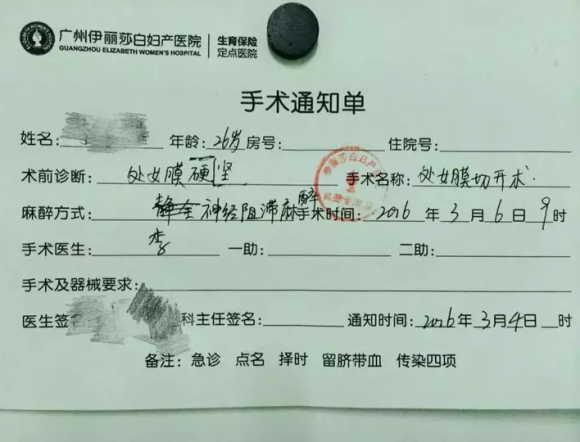 广州伊丽莎白妇产医院 生育保险
GUANGZHOU ELIZABETH WOMEN'S HOSPITAL 定点医院
手术通知单
姓名: 年龄: 26岁 房号: 住院号:
术前诊断: 处女膜硬坚 手术名称: 处女膜切开术.
麻醉方式 神经阻滞麻醉 手术时间: 2016年3月6日9时
手术医生: 李 一助: 二助:
手术及器械要求:
医生签 科主任签名: 通知时间: 2016年3月4日 时
备注: 急诊 点名 择时 留脐带血 传染四项